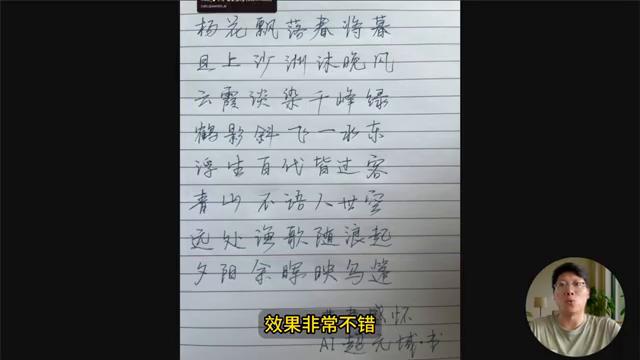 杨花飘落春将暮
且上沙洲沐晚风
云霞谈染千峰绿
鹤影斜飞一水东
浮生百代皆过客
青山不语人世空
远处渔歌随浪起
夕阳余晖映乌篷
感怀
AI超元域·书
效果非常不错